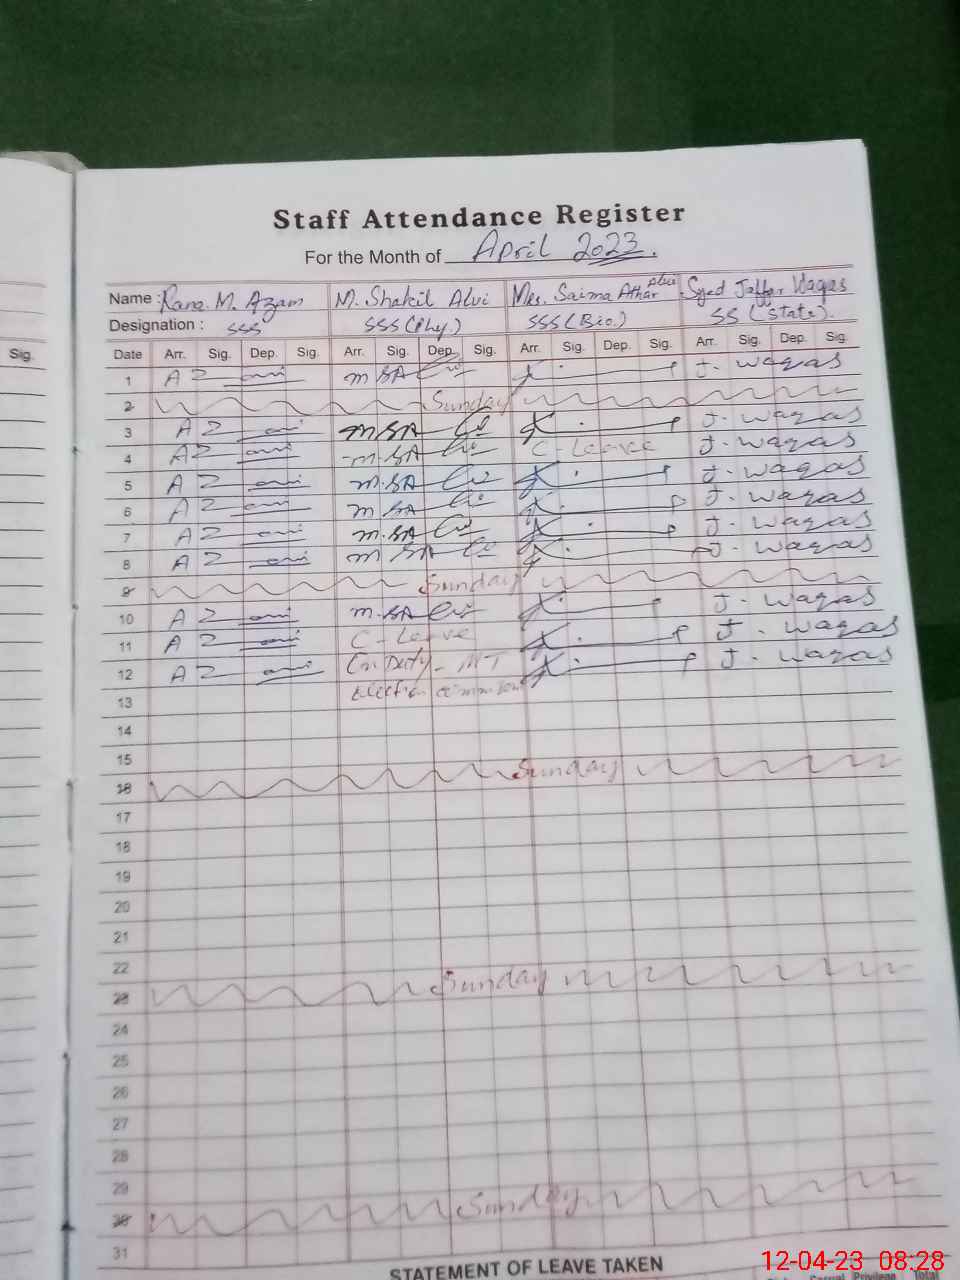 Staff Attendance Register
For the Month of April 2023.
Name : Rana. M. Azam M. Shakil Alvi Mrs. Saima Athar Alvi Syed Jaffar Waqas
Designation : SSS SSS (Phy.) SSS (Bio.) SS (State).
Sig. Date Arr. Sig. Dep. Sig. Arr. Sig. Dep. Sig. Arr. Sig. Dep. Sig. Arr. Sig. Dep. Sig.
1 A Z M SA J. Waqas
2 Sunday
3 A Z M SA J. Waqas
4 A Z M. SA C - Leave J. Waqas
5 A Z M. SA J. Waqas
6 A Z M SA J. Waqas
7 A Z M. SA J. Waqas
8 A Z M SA J. Waqas
9 Sunday
10 A Z M. SA J. Waqas
11 A Z C - Leave J. Waqas
12 A Z On Duty - MT J. Waqas
13 Election
14
15
16 Sunday
17
18
19
20
21
22
23 Sunday
24
25
26
27
28
29
30 Sunday
31
STATEMENT OF LEAVE TAKEN
Casual Privilege Total
12-04-23 08:28